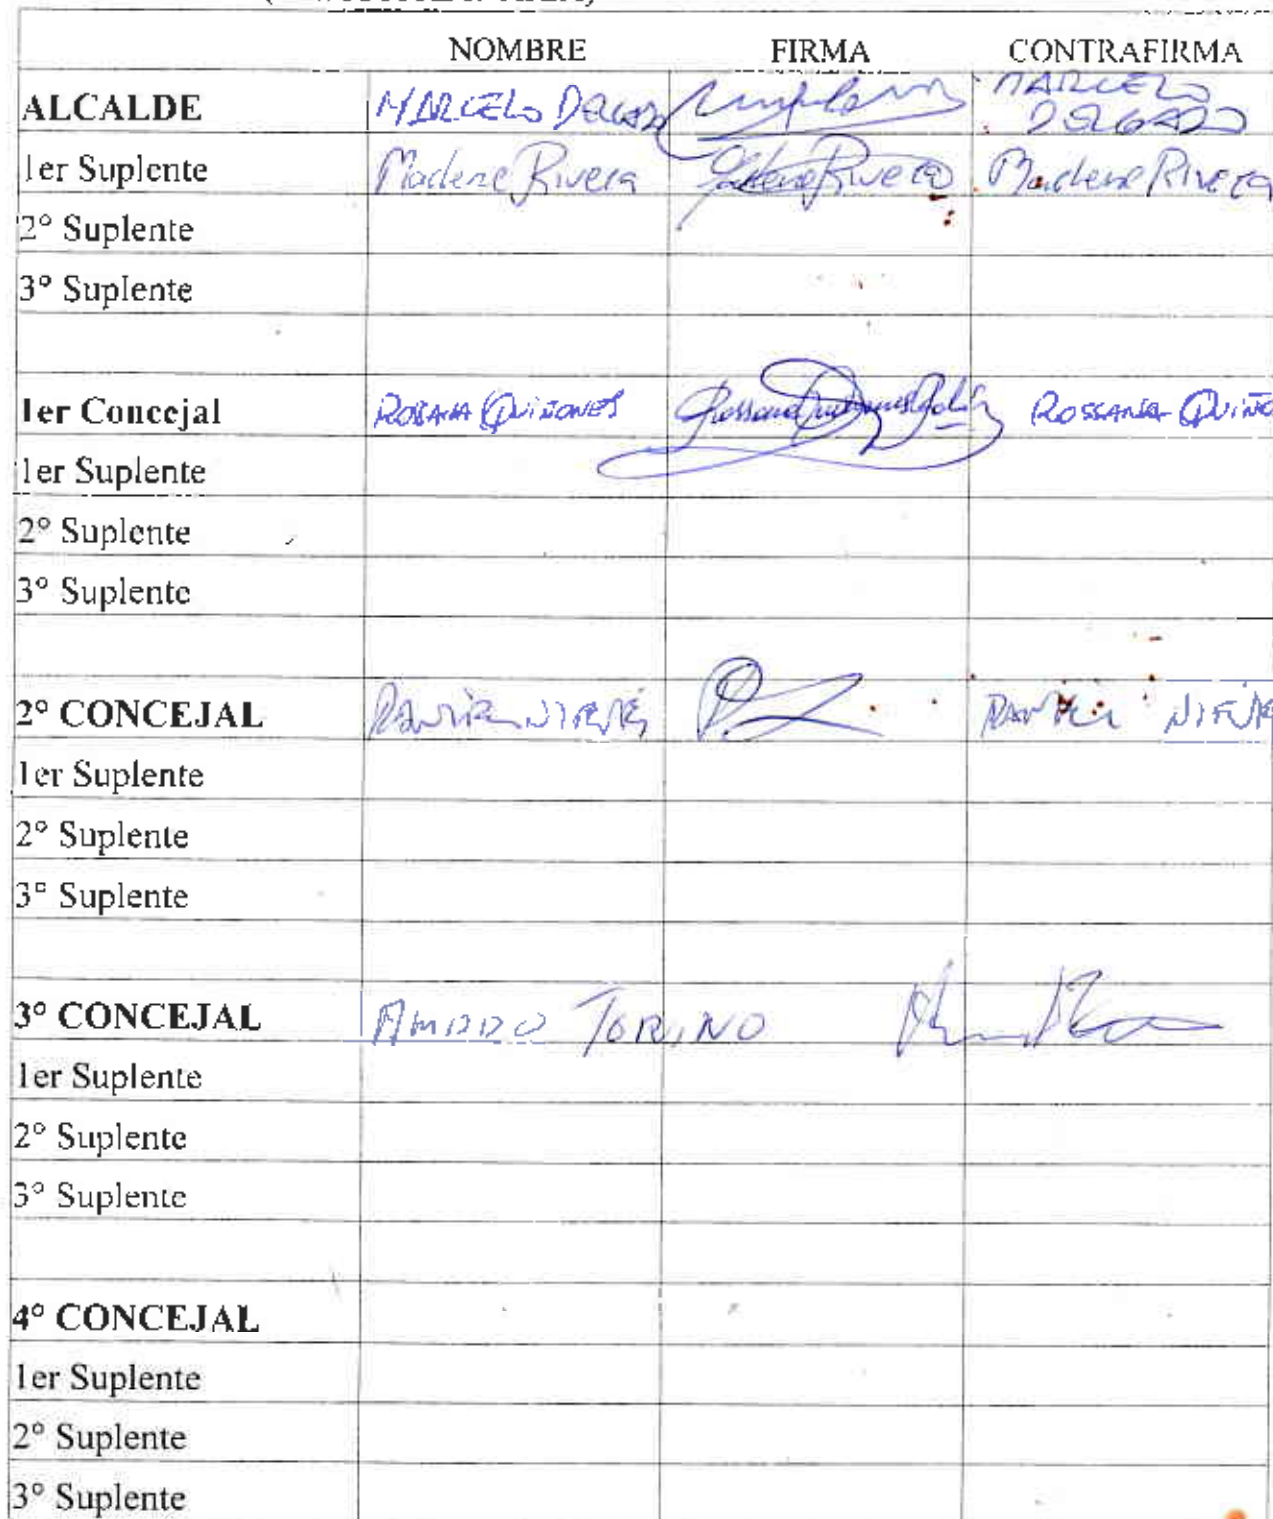 NOMBRE FIRMA CONTRAFIRMA
ALCALDE MARCELO DELGADO MARCELO DELGADO
1er Suplente Marlene Rivera Marlene Rivera Marlene Rivera
2° Suplente
3° Suplente
1er Concejal ROSANA QUIÑONES ROSSANA QUIÑO
1er Suplente
2° Suplente
3° Suplente
2° CONCEJAL
1er Suplente
2° Suplente
3° Suplente
3° CONCEJAL AMARO TORINO
1er Suplente
2° Suplente
3° Suplente
4° CONCEJAL
1er Suplente
2° Suplente
3° Suplente